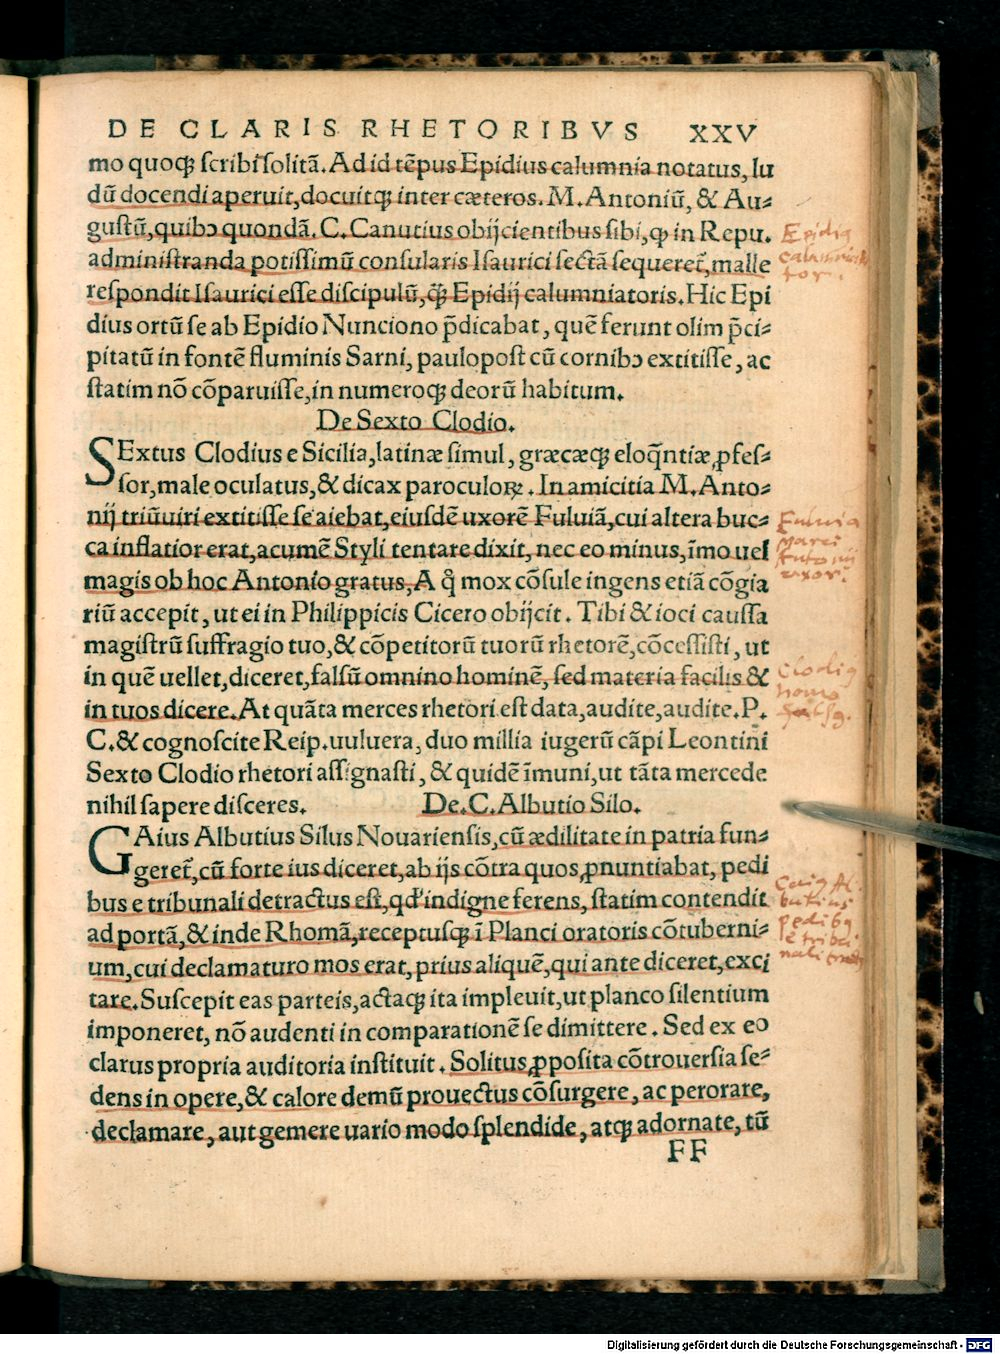 DE CLARIS RHETORIBVS XXV
mo quoqꝫ scribi solitã. Ad id tẽpus Epidius calumnia notatus, lu
dũ docendi aperuit, docuitqꝫ inter cæteros. M. Antoniũ, & Au-
gustũ, quibꝰ quondã. C. Canutius obijcientibus sibi, ꝙ in Repu.
administranda potissimũ consularis Isaurici sectã sequeret̃, malle
respondit Isaurici esse discipulũ, q̃ꝫ Epidij calumniatoris. Hic Epi
dius ortũ se ab Epidio Nunciono p̃dicabat, quẽ ferunt olim p̃ci-
pitatũ in fontẽ fluminis Sarni, paulopost cũ cornibꝰ extitisse, ac
statim nõ cõparuisse, in numeroqꝫ deorũ habitum.
De Sexto Clodio.
SExtus Clodius e Sicilia, latinæ simul, græcæqꝫ eloq̃ntiæ, ꝓfes-
sor, male oculatus, & dicax paroculoꝝ. In amicitia M. Anto-
nij triũuiri extitisse se aiebat, eiusdẽ uxorẽ Fuluiã, cui altera buc-
ca inflatior erat, acumẽ Styli tentare dixit, nec eo minus, ĩmo uel
magis ob hoc Antonio gratus, A q̊ mox cõsule ingens etiã cõgia
riũ accepit, ut ei in Philippicis Cicero obijcit. Tibi & ioci caussa
magistrũ suffragio tuo, & cõpetitorũ tuorũ rhetorẽ, cõcessisti, ut
in quẽ uellet, diceret, falsũ omnino hominẽ, sed materia facilis &
in tuos dicere. At quãta merces rhetori est data, audite, audite. P.
C. & cognoscite Reip. uuluera, duo millia iugerũ cãpi Leontini
Sexto Clodio rhetori assignasti, & quidẽ ĩmuni, ut tãta mercede
nihil sapere disceres. De. C. Albutio Silo.
GAius Albutius Silus Nouariensis, cũ ædilitate in patria fun-
geret̃, cũ forte ius diceret, ab ijs cõtra quos, ꝓnuntiabat, pedi
bus e tribunali detractus est, qd' indigne ferens, statim contendit
ad portã, & inde Rhomã, receptusqꝫ ĩ Planci oratoris cõtuberni-
um, cui declamaturo mos erat, prius aliquẽ, qui ante diceret, exci
tare. Suscepit eas parteis, actaqꝫ ita impleuit, ut planco silentium
imponeret, nõ audenti in comparationẽ se dimittere. Sed ex eo
clarus propria auditoria instituit. Solitus, ꝓposita cõtrouersia se-
dens in opere, & calore demũ prouectus cõsurgere, ac perorare,
declamare, aut gemere uario modo splendide, atqꝫ adornate, tũ
FF
Epidiꝰ
tor.
Fuluia
Marci
Antonij
uxor.
Clodiꝰ
homo
Caiꝰ Al-
butius
pedibꝰ
e tribu
nali
Digitalisierung gefördert durch die Deutsche Forschungsgemeinschaft - DFG